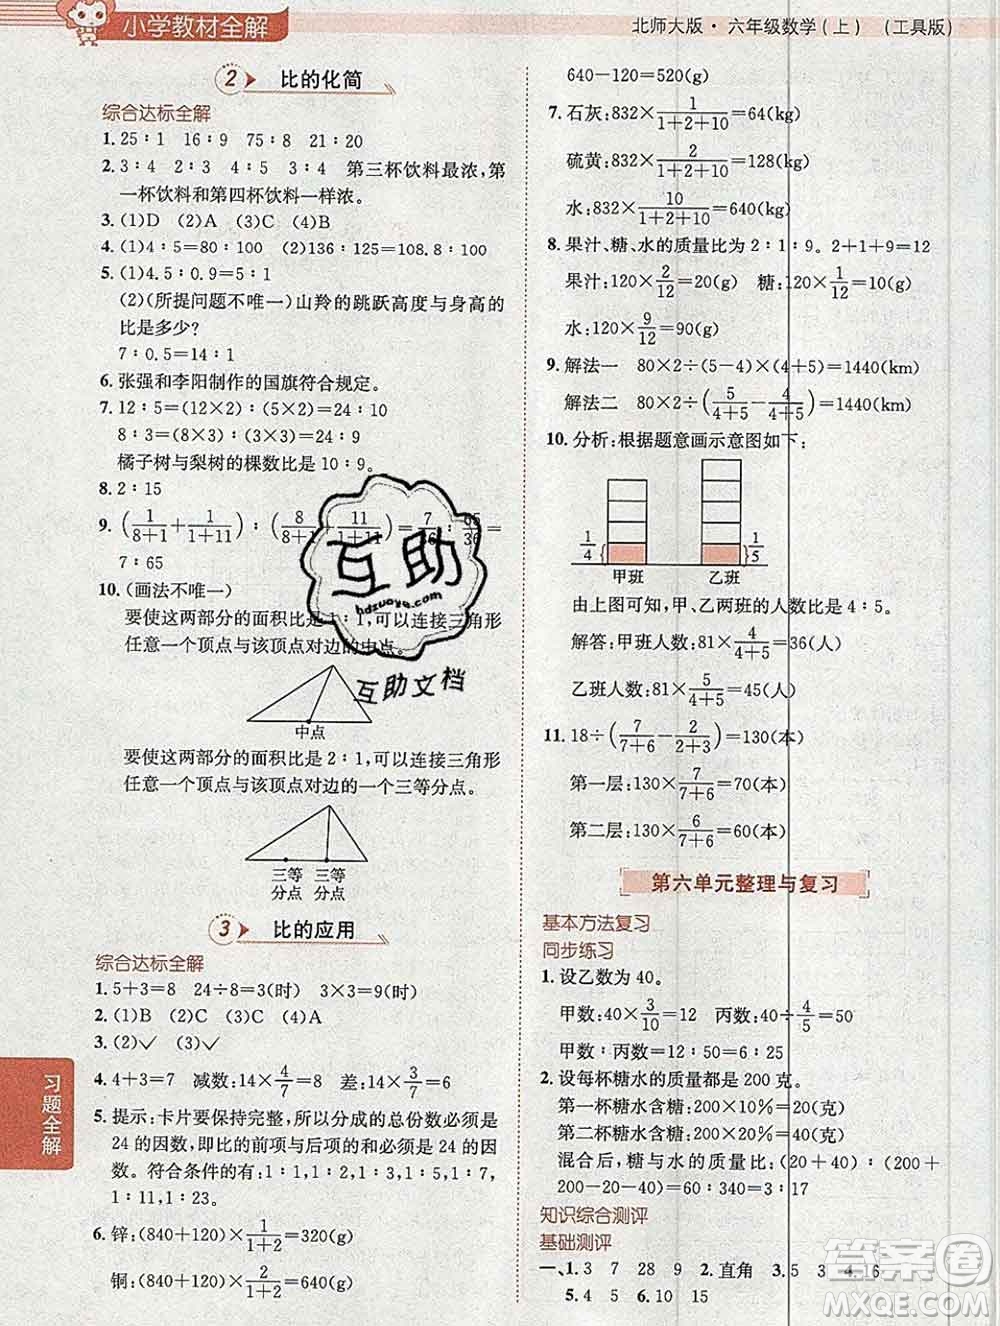 小学教材全解
北师大版·六年级数学(上) (工具版)
2 比的化简
综合达标全解
1. 25∶1 16∶9 75∶8 21∶20
2. 3∶4 2∶3 4∶5 3∶4 第三杯饮料最浓,第
一杯饮料和第四杯饮料一样浓。
3. (1)D (2)A (3)C (4)B
4. (1)4∶5=80∶100 (2)136∶125=108.8∶100
5. (1)4.5∶0.9=5∶1
(2)(所提问题不唯一)山羚的跳跃高度与身高的
比是多少?
7∶0.5=14∶1
6. 张强和李阳制作的国旗符合规定。
7. 12∶5=(12×2)∶(5×2)=24∶10
8∶3=(8×3)∶(3×3)=24∶9
橘子树与梨树的棵数比是10∶9。
8. 2∶15
9. (1/(8+1)+1/(1+11))∶(8/(8+1)+11/(1+11))=7/36∶65/36=
7∶65
10. (画法不唯一)
要使这两部分的面积比是1∶1,可以连接三角形
任意一个顶点与该顶点对边的中点。
中点
要使这两部分的面积比是2∶1,可以连接三角形
任意一个顶点与该顶点对边的一个三等分点。
三等 三等
分点 分点
3 比的应用
综合达标全解
1. 5+3=8 24÷8=3(时) 3×3=9(时)
2. (1)B (2)C (3)C (4)A
3. (2)✓ (3)✓
4. 4+3=7 减数:14×4/7=8 差:14×3/7=6
5. 提示:卡片要保持完整,所以分成的总份数必须是
24的因数,即比的前项与后项的和必须是24的因
数。符合条件的有:1∶1,1∶2,1∶3,1∶5,1∶7,
1∶11,1∶23。
6. 锌:(840+120)×1/(1+2)=320(g)
铜:(840+120)×2/(1+2)=640(g)
习题全解
640-120=520(g)
7. 石灰:832×1/(1+2+10)=64(kg)
硫黄:832×2/(1+2+10)=128(kg)
水:832×10/(1+2+10)=640(kg)
8. 果汁、糖、水的质量比为2∶1∶9。2+1+9=12
果汁:120×2/12=20(g) 糖:120×1/12=10(g)
水:120×9/12=90(g)
9. 解法一 80×2÷(5-4)×(4+5)=1440(km)
解法二 80×2÷(5/(4+5)-4/(4+5))=1440(km)
10. 分析:根据题意画示意图如下:
1/4 1/5
甲班 乙班
由上图可知,甲、乙两班的人数比是4∶5。
解答:甲班人数:81×4/(4+5)=36(人)
乙班人数:81×5/(4+5)=45(人)
11. 18÷(7/(7+6)-2/(2+3))=130(本)
第一层:130×7/(7+6)=70(本)
第二层:130×6/(7+6)=60(本)
第六单元整理与复习
基本方法复习
同步练习
1. 设乙数为40。
甲数:40×3/10=12 丙数:40÷4/5=50
甲数∶丙数=12∶50=6∶25
2. 设每杯糖水的质量都是200克。
第一杯糖水含糖:200×10%=20(克)
第二杯糖水含糖:200×20%=40(克)
混合后,糖与水的质量比:(20+40)∶(200+
200-20-40)=60∶340=3∶17
知识综合测评
基础测评
一、1. 3 7 28 9 2. 直角 3. 5 3 4. 16
5. 4 5 6. 10 15
互助
hdzuoye.com
互助文档
答案圈
MXQE.COM